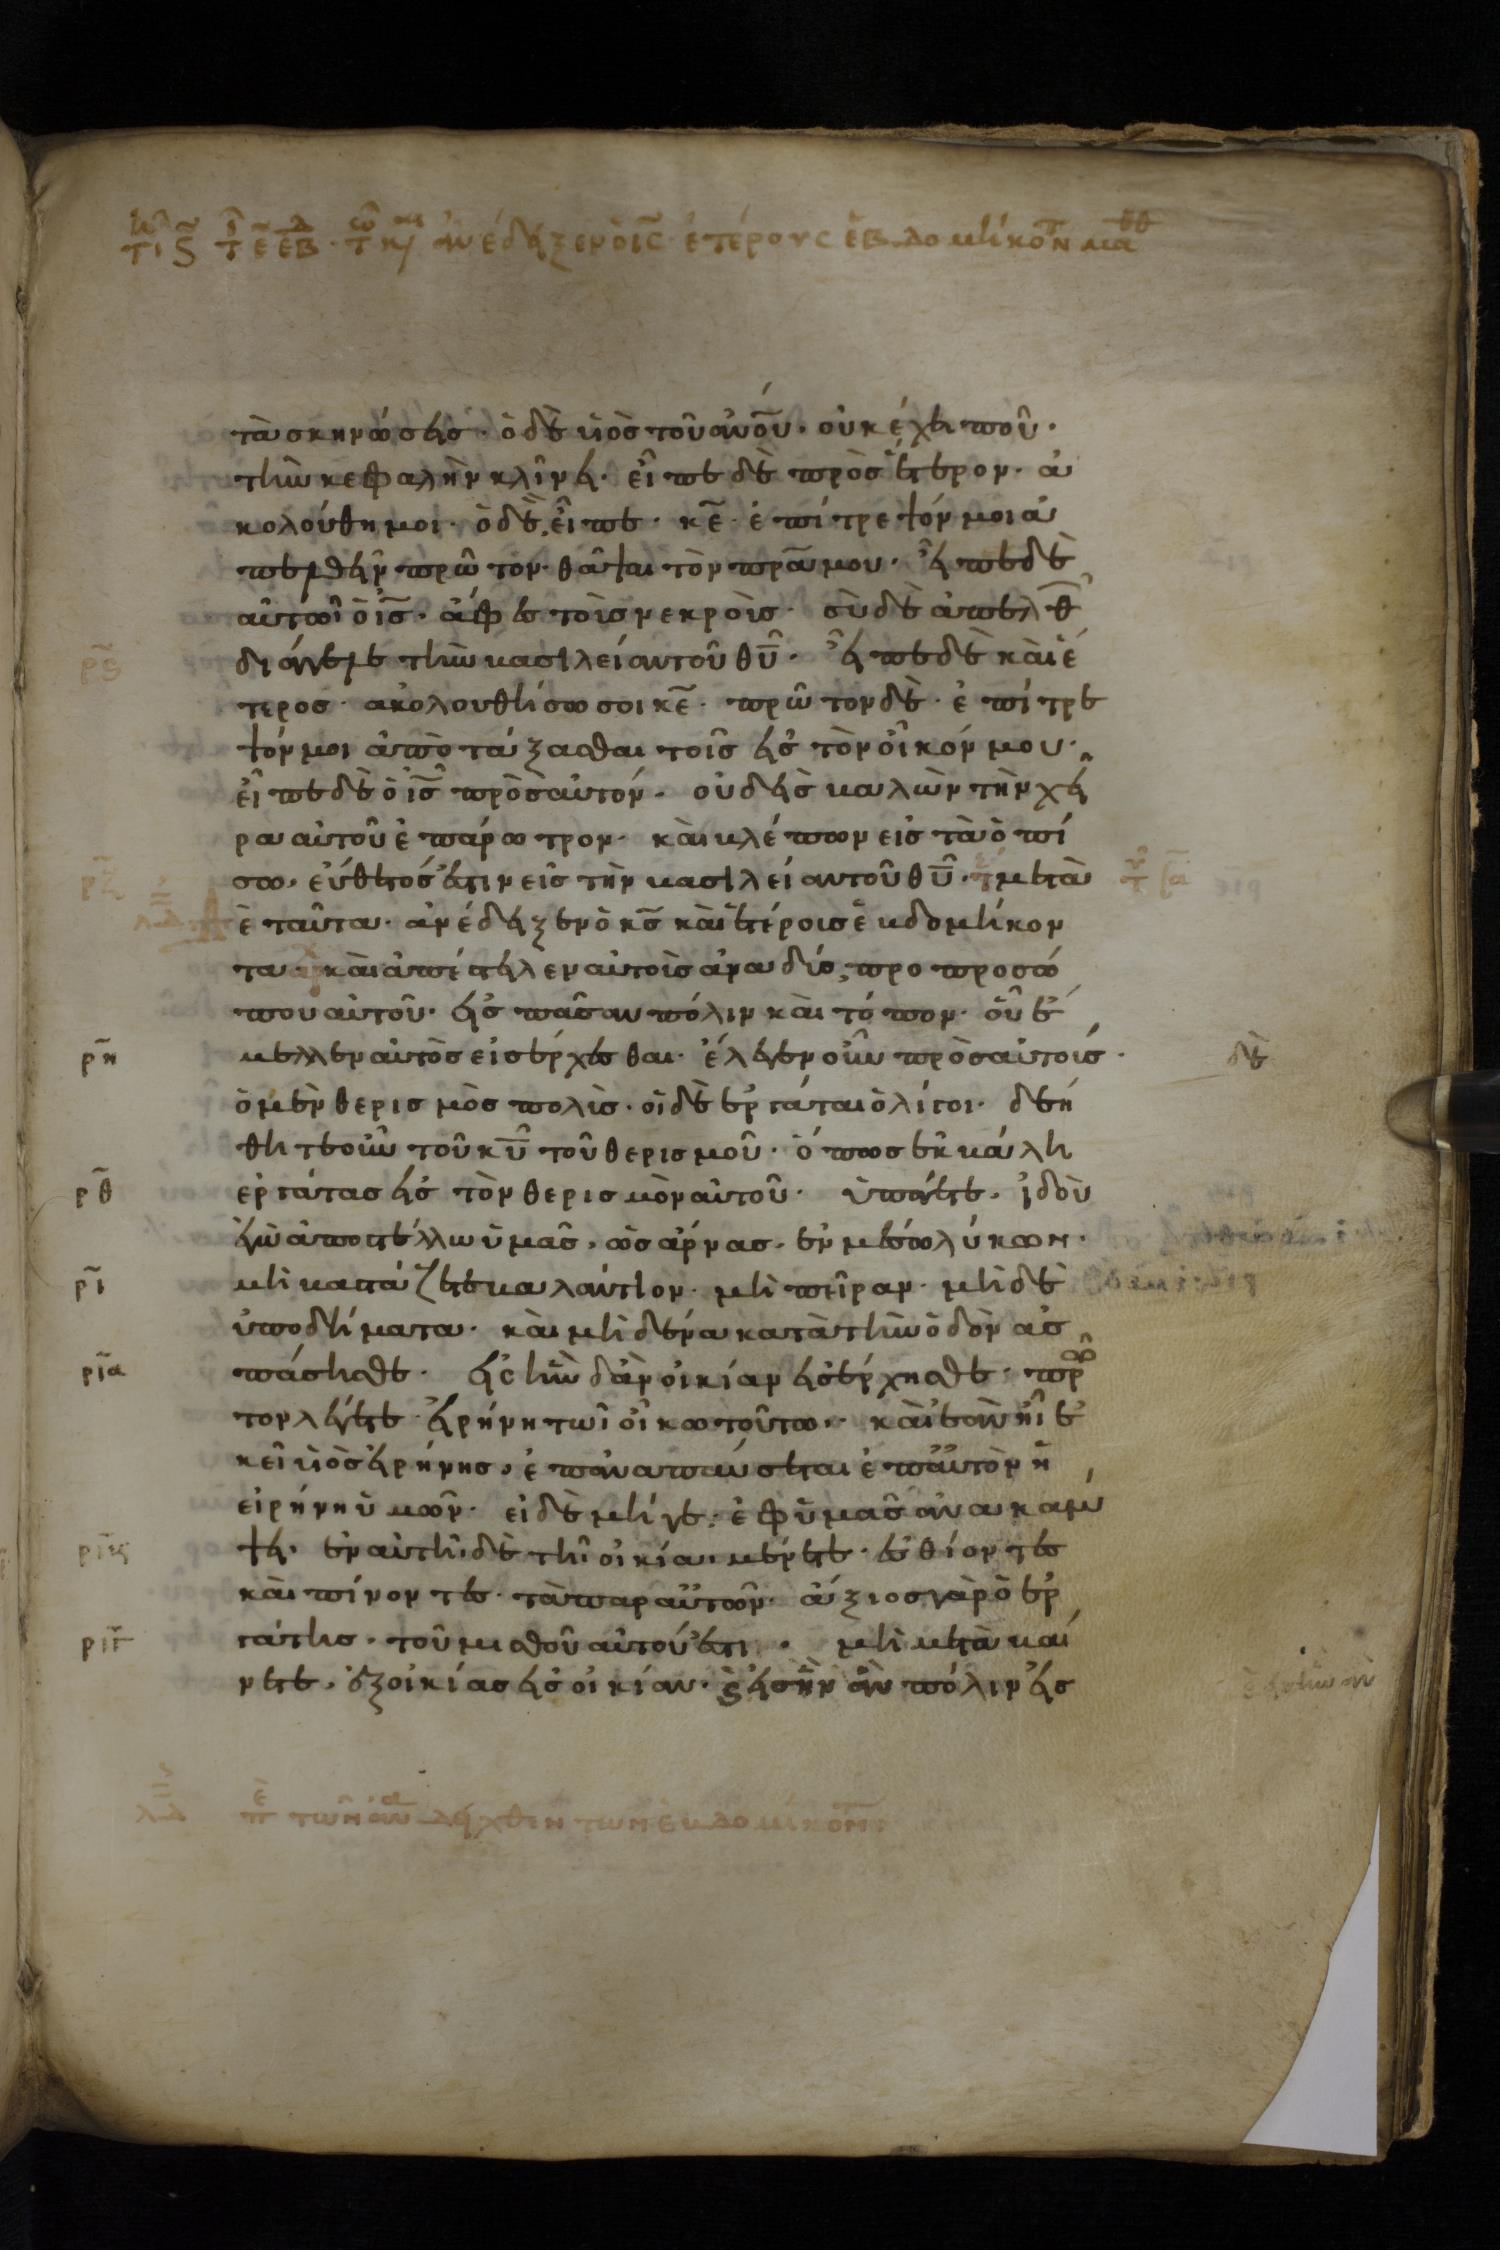 τασκηνώσεις· ὁ δὲ υἱὸς τοῦ ἀνου̅· οὐκ ἔχει ποῦ·
τὴν κεφαλὴν κλῖνει· εἶπε δὲ πρὸς ἕτερον· ἀ
κολούθη μοι· ὁ δὲ εἶπε· κε̅· ἐπίτρεψόν μοι ἀ
πελθεῖν πρῶτον· θάψαι τὸν πρα̅ μου· εἶπε δὲ
αὐτῶ ὁ ις̅· ἄφες τοῖς νεκροῖς· σὺ δὲ ἀπελθ
διάγγελε τὴν βασιλείαν τοῦ θυ̅· εἶπε δὲ καὶ ἕ
τερος· ακολουθήσω σοι κε̅· πρῶτον δὲ· ἐπίτρε
ψόν μοι ἀπὸτάξασθαι τοῖς εἰς τὸν οἶκόν μου·
εἶπε δὲ ὁ ις̅ πρὸς αὐτόν· οὐδεὶς βαλὼν τὴν χεῖ
ρα αὐτοῦ ἐπ ἄρωτρον· καὶ βλέπων εἰς τὰ ὀπί
σω· εὔθετός ἐστιν εἰς τὴν βασιλείαν τοῦ θυ̅· μετὰ
ὲ ταῦτα· ἀνέδειξεν ὁ κς̅ καὶ ἑτέροις ἑβδομήκον
τα· καὶ ἀπέστειλεν αὐτοῖς ἀνα δύο, προ προσώ
που αὐτοῦ· εἰς πᾶσαν πόλιν καὶ τόπον· οὗ ἔ
μελλεν αὐτὸς εἰσέρχεσθαι· ἔλεγεν οὖν πρὸς αὐτοις·
ρη̅
δὲ
ὁ μὲν θερισμὸς πολὶς· οἱ δὲ ἐργάται ὀλίγοι· δεή
θητε οὖν τοῦ κυ̅ τοῦ θερισμοῦ· ὅπως ἐκβάλη
ρθ̅
ἐργάτας εἰς τὸν θερισμὸν αὐτοῦ· ὑπάγετε· ἰδοὺ
ἐγὼ ἀποστέλλω ὑμᾶς· ὡς ἄρνας· ἐν μέσω λύκων·
ρι̅
μὴ βαστάζετε βαλάντιον· μὴ πεῖραν· μὴ δὲ
ὑποδήματα· καὶ μὴδένα κατὰ τὴν ὁδὸν ἀσ
ρια̅
πάσησθε· εἰς ἣν δὰν οἰκίαν εἰσέρχησθε· πρω
τον λέγετε· εἰρήνη τῶ οἴκω τοῦτω· καὶ ἐὰν ἦ ἐ
κεῖ υἱὸς εἰρήνης· ἐπαναπαύσεται ἐπ αὐτὸν ἡ
εἰρήνη ὑμῶν· εἰ δὲ μήγε· ἐφ ὑμᾶς ἀνακάμ
ριβ̅
ψει· ἐν αὐτῆ δὲ τῆ οἰκία· μένετε· ἐσθίοντες
καὶ πίνοντες· τὰ παρ αὐτῶν· ἄξιος γὰρ ὁ ἐρ
ριγ̅
γάτης· τοῦ μισθοῦ αὐτοῦ ἐστι· μὴ μεταβαί
νετε· ἐξ οἰκίας εἰς οἰκίαν· ϗ εἰς ἣν ἂν πόλιν εἰς